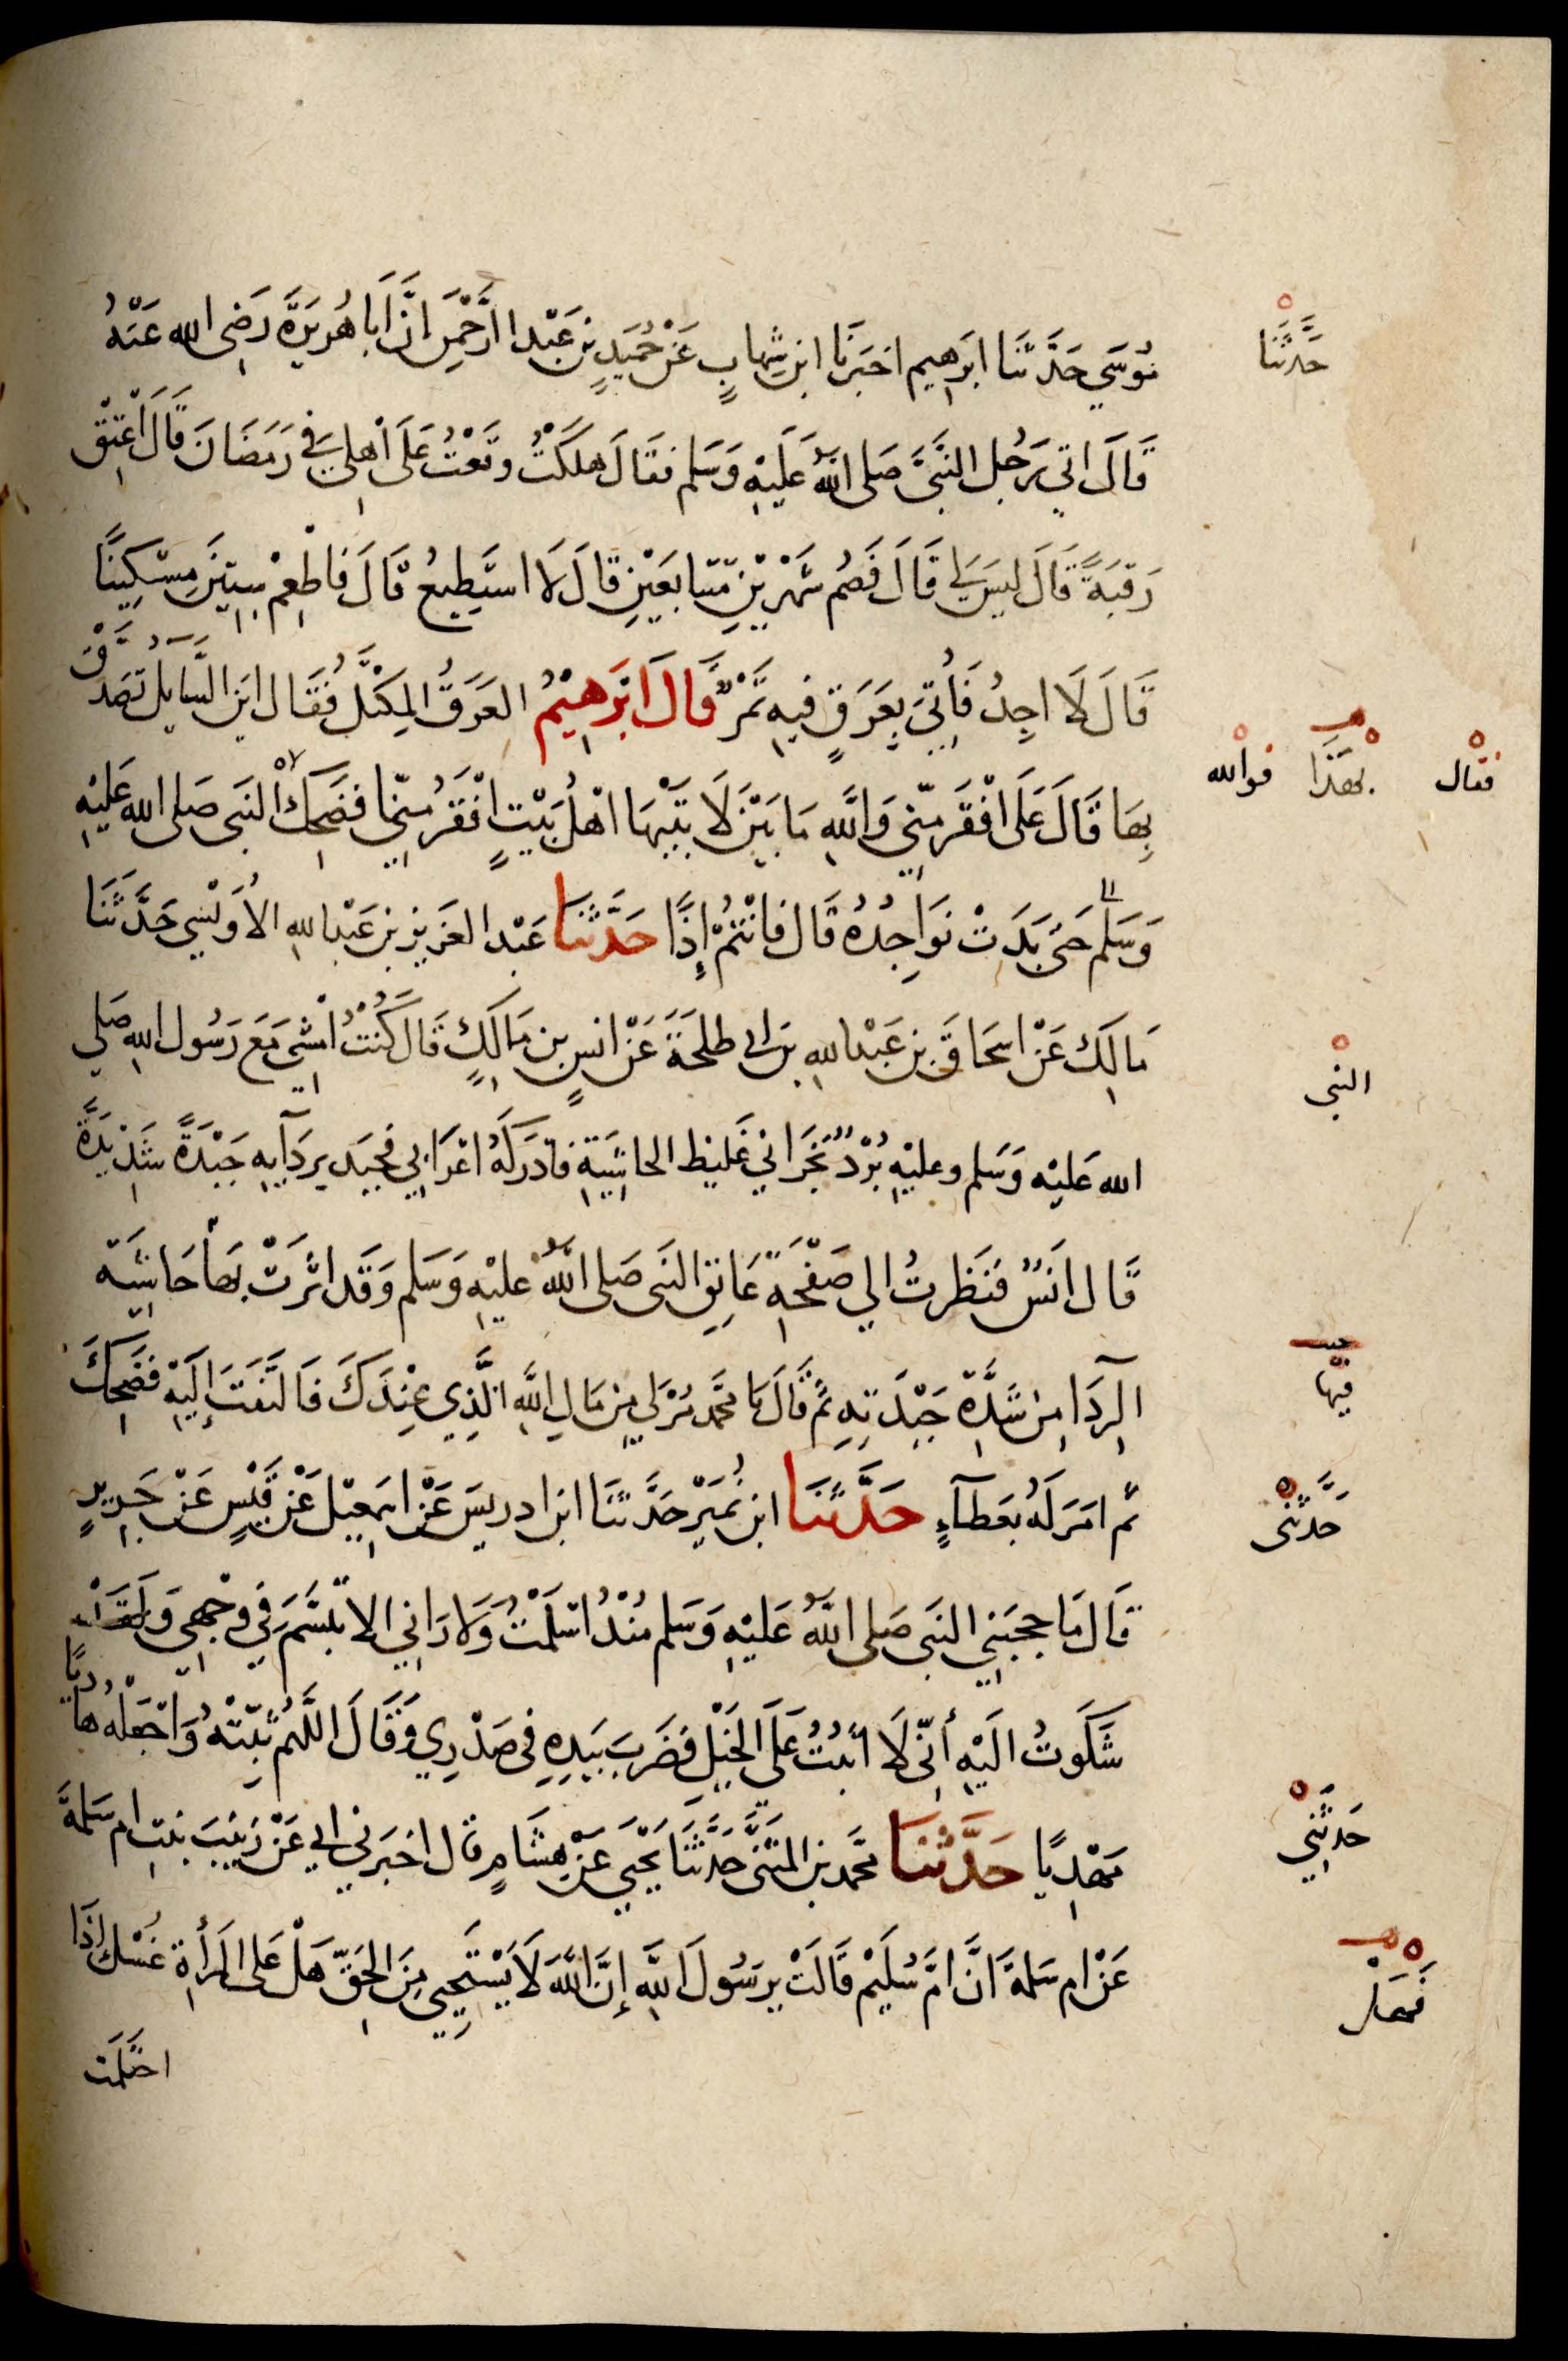 مُوسَى حَدَّثَنَا ابرَهِيم اخبَرَنَا ابن شِهَابٍ عَنْ حُمَيدِ بن عَبْد الرَّحْمنِ اَنَّ اَبَا هُرَيرَةَ رَضِى الله عَنهُ
حَدَّثَنَا
قَالَ اتي رَجُل النَّبِيَّ صَلى اللهُ عَلَيْهِ وَسَلم فقَالَ هَلَكْتُ وَقَعْتُ عَلَى اَهْلِي فِي رَمَضَانَ قَالَ اَعْتِقْ
رَقبَةً قَالَ ليسَ لِي قَالَ فَصُم شَهْرَيْنِ مُتَتابعَيْنِ قالَ لَا استَطِيعُ قَالَ فَاطْعِمْ سِتِينَ مِسْكِينًا
قَالَ لَا اجِدُ فَاُتِيَ بِعَرَقٍ فيهِ تَمْرٌ قَالَ ابْرَهِيْمُ العَرَقُ المِكتَلُ فَقَال اَينَ السَّايلُ تَصَدَّقْ
فقال
بهَذَا
فوالله
بِهَا قَالَ عَلَى اَفْقَرَ مِنّي وَاللَّهِ مَا بَيْنَ لَابَتَيْهَا اهْلُ بَيْتٍ افْقَرُ مِنّا فضَحِكَ النبَى صَلى الله عَلَيْهِ
وَسَلم حَتى بَدَتْ نوَاجِذُهُ قَال فَانْتُمْ إِذًا حَدَّثَنَا عَبْد العَزيز بن عَبْد اللهِ الاُوَيْسِي حَدَّثَنَا
مَالِك عَنْ اسحَاقَ بن عَبْد اللهِ بن ابي طلحَةَ عَنْ انسِ بن مَالِكٍ قَال كُنْتُ اَمْشِي مَعَ رَسُول اللهِ صَلي
النبى
الله عَليْه وَسَلم وعليْهِ بُرْدٌ نَجْرَانِي غَليظ الحاشِيَةِ فادرَكَهُ اعْرَابِي فجبَذ بِردَآيِهِ جَبْذَةً شَدِيْدَةً
قَال انَسٌ فنَظرتُ الي صَفْحَةِ عَاتِقِ النبَى صَلى اللهُ عليْهِ وَسَلم وَقَد اثَّرَتْ بهَا حَاشِيَة
فيهَا
الرِدَا مِن شِدَّةِ جَبْذَتِهِ ثُمَّ قَالَ يَا مُحَمَّد مُرْ لِي مِن مَالِ اللَّهِ الَّذِي عِنْدَكَ فَالتَفَتَ إِلَيْهِ فضَحِكَ
ثم امَرَ لَهُ بعَطآءٍ حَدَّثَنَا ابن نُمَيْر حَدَّثَنَا ابن ادريسَ عَنْ اسمَعِيْل عَنْ قَيْسٍ عَنْ جَريرٍ
حَدَّثَنى
قَال مَا حجبَنِي النبَى صَلى اللهُ عَلَيْهِ وَسَلم مُنْذُ اسْلَمْتُ وَلَا رَانِي الا تبَسَّمَ فِي وجْهِي وَلَقَدْ
شَكَوتُ الَيْهِ أنّى لَا اثبُتُ عَلَى الخَيْلِ فضَرَبَ بيَدِهِ فى صَدْرِي وَقَالَ اللَّهُم ثبِّتْهُ وَاجْعَلْهُ هادِيًا
مَهْدِيًا حَدَّثَنَا مُحَمَّد بن المثَنَّى حَدَّثَنَا يَحْيَى عَنْ هِشَامٍ قال اخبَرنِي ابي عَنْ زَينَبَ بنتِ ام سَلمَةَ
حَدثَنِي
عَنْ ام سَلمَةَ انَّ امَّ سُلَيْم قَالَتْ يرَسُولَ اللَّهِ إِنَّ اللَّهَ لَا يَسْتَحِيي مِنَ الحَقِّ هَلْ عَلى المَرأَةِ غُسْلٌ اذَا
فَهَل
احتَلَمَت